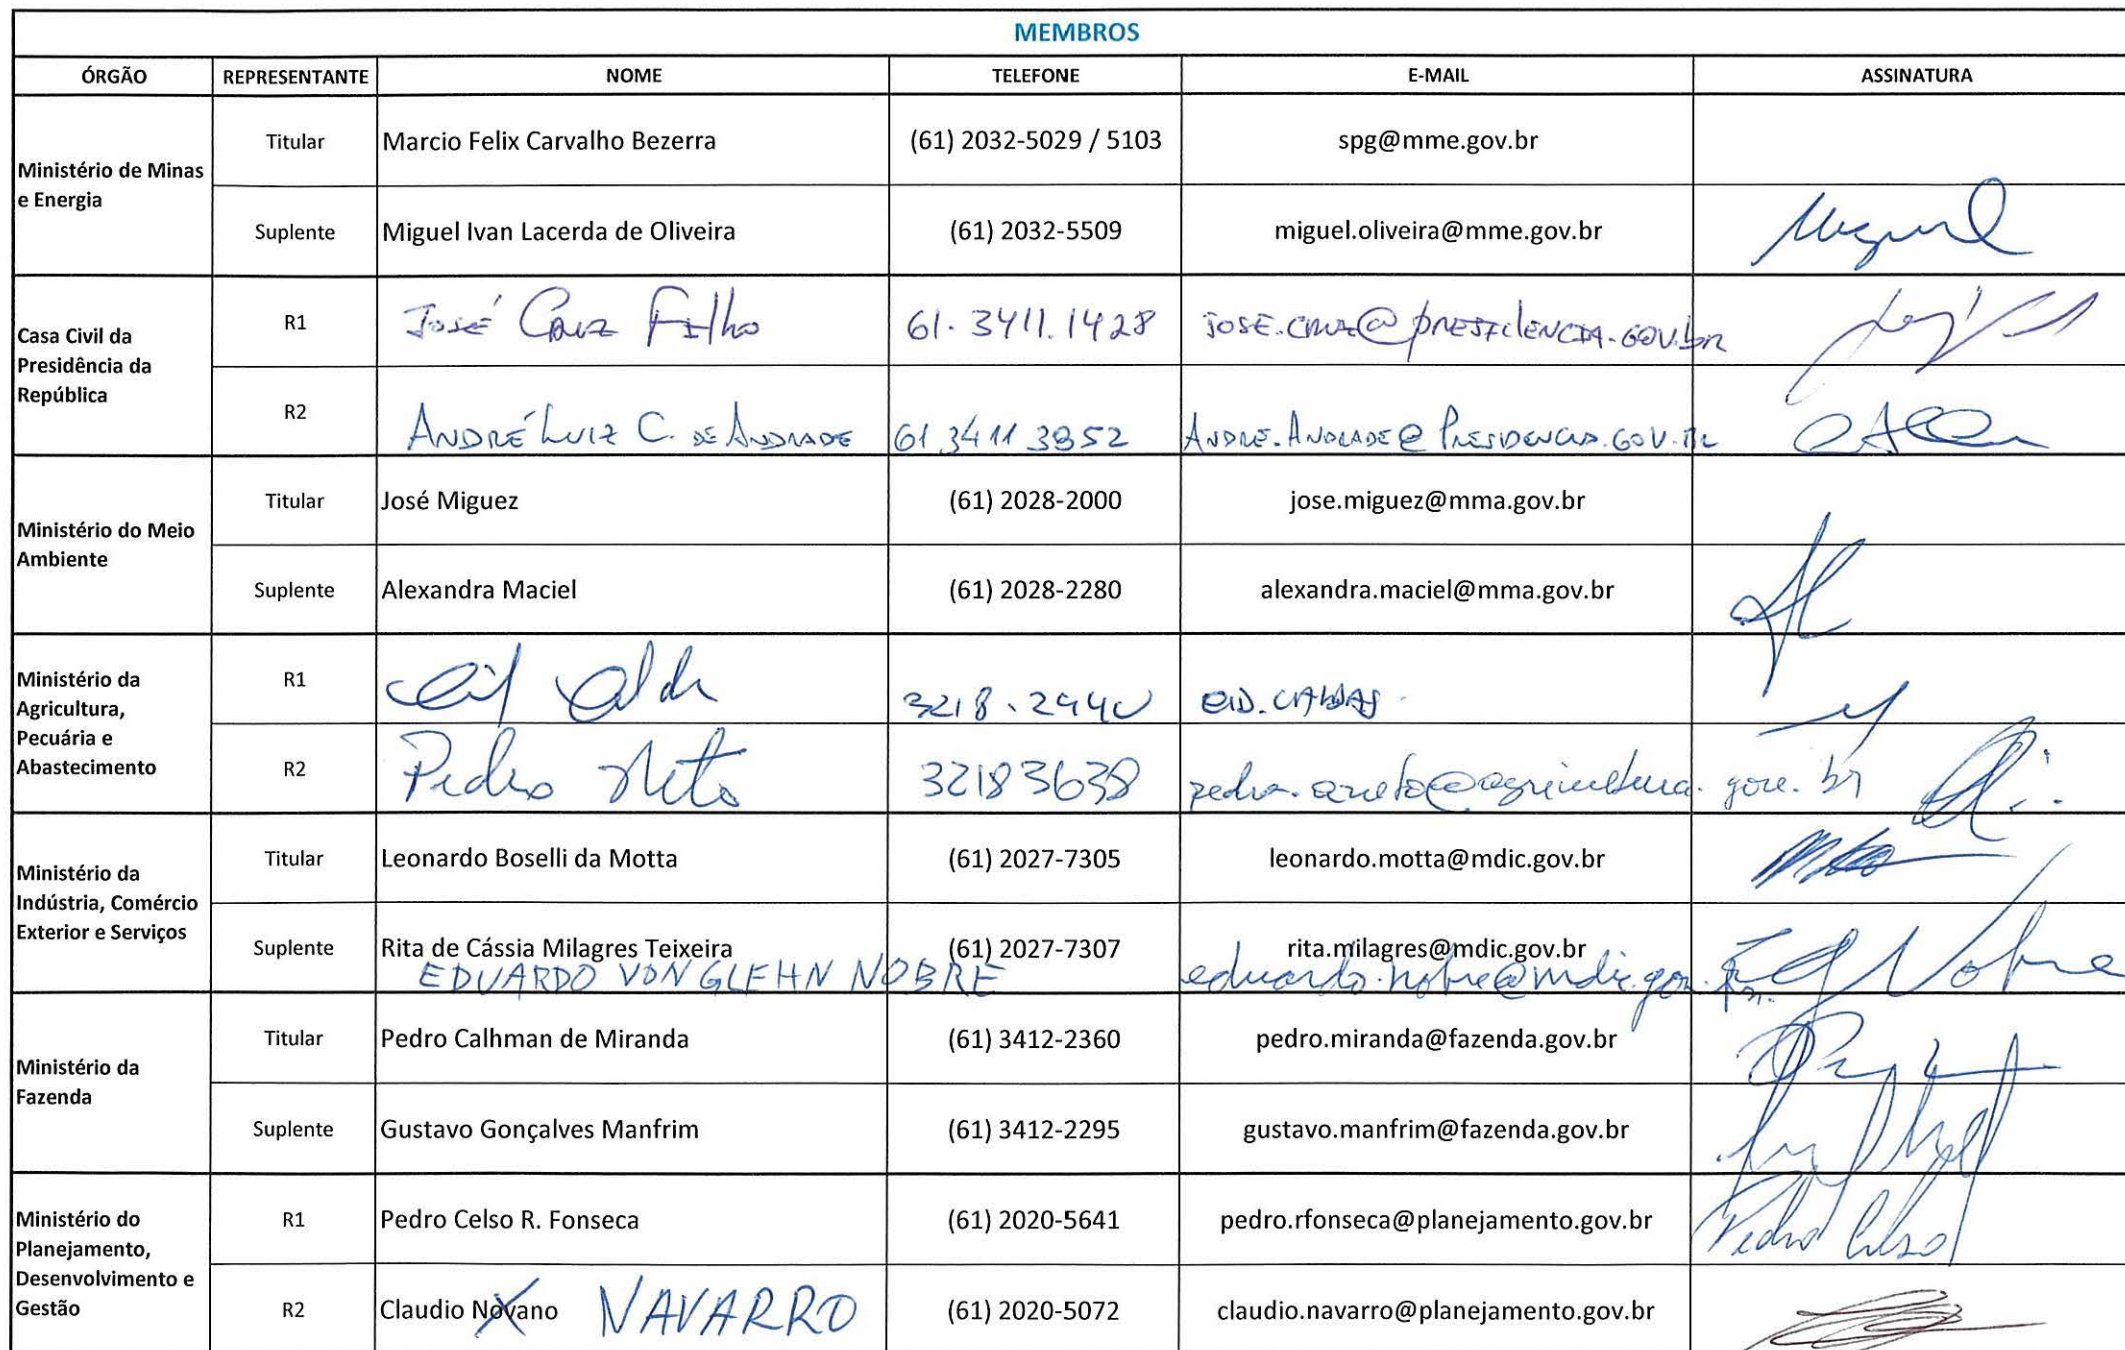 MEMBROS
ÓRGÃO REPRESENTANTE NOME TELEFONE E-MAIL ASSINATURA
Ministério de Minas e Energia
Titular Marcio Felix Carvalho Bezerra (61) 2032-5029 / 5103 spg@mme.gov.br
Suplente Miguel Ivan Lacerda de Oliveira (61) 2032-5509 miguel.oliveira@mme.gov.br Miguel
Casa Civil da Presidência da República
R1 José Cruz Filho 61. 3411.1428 JOSE.CRUZ@PRESIDENCIA.GOV.br
R2 ANDRÉ LUIZ C. DE ANDRADE 61 3411 3852 ANDRE.ANDRADE@PRESIDENCIA.GOV.BR
Ministério do Meio Ambiente
Titular José Miguez (61) 2028-2000 jose.miguez@mma.gov.br
Suplente Alexandra Maciel (61) 2028-2280 alexandra.maciel@mma.gov.br
Ministério da Agricultura, Pecuária e Abastecimento
R1 3218.2440 CID.CALDAS
R2 Pedro Neto 32183638 pedro.aneto@agricultura.gov.br
Ministério da Indústria, Comércio Exterior e Serviços
Titular Leonardo Boselli da Motta (61) 2027-7305 leonardo.motta@mdic.gov.br
Suplente Rita de Cássia Milagres Teixeira (61) 2027-7307 rita.milagres@mdic.gov.br
EDUARDO VON GLEHN NOBRE eduardo.nobre@mdic.gov.br Nobre
Ministério da Fazenda
Titular Pedro Calhman de Miranda (61) 3412-2360 pedro.miranda@fazenda.gov.br
Suplente Gustavo Gonçalves Manfrim (61) 3412-2295 gustavo.manfrim@fazenda.gov.br
Ministério do Planejamento, Desenvolvimento e Gestão
R1 Pedro Celso R. Fonseca (61) 2020-5641 pedro.rfonseca@planejamento.gov.br Pedro Celso
R2 Claudio Novano NAVARRO (61) 2020-5072 claudio.navarro@planejamento.gov.br